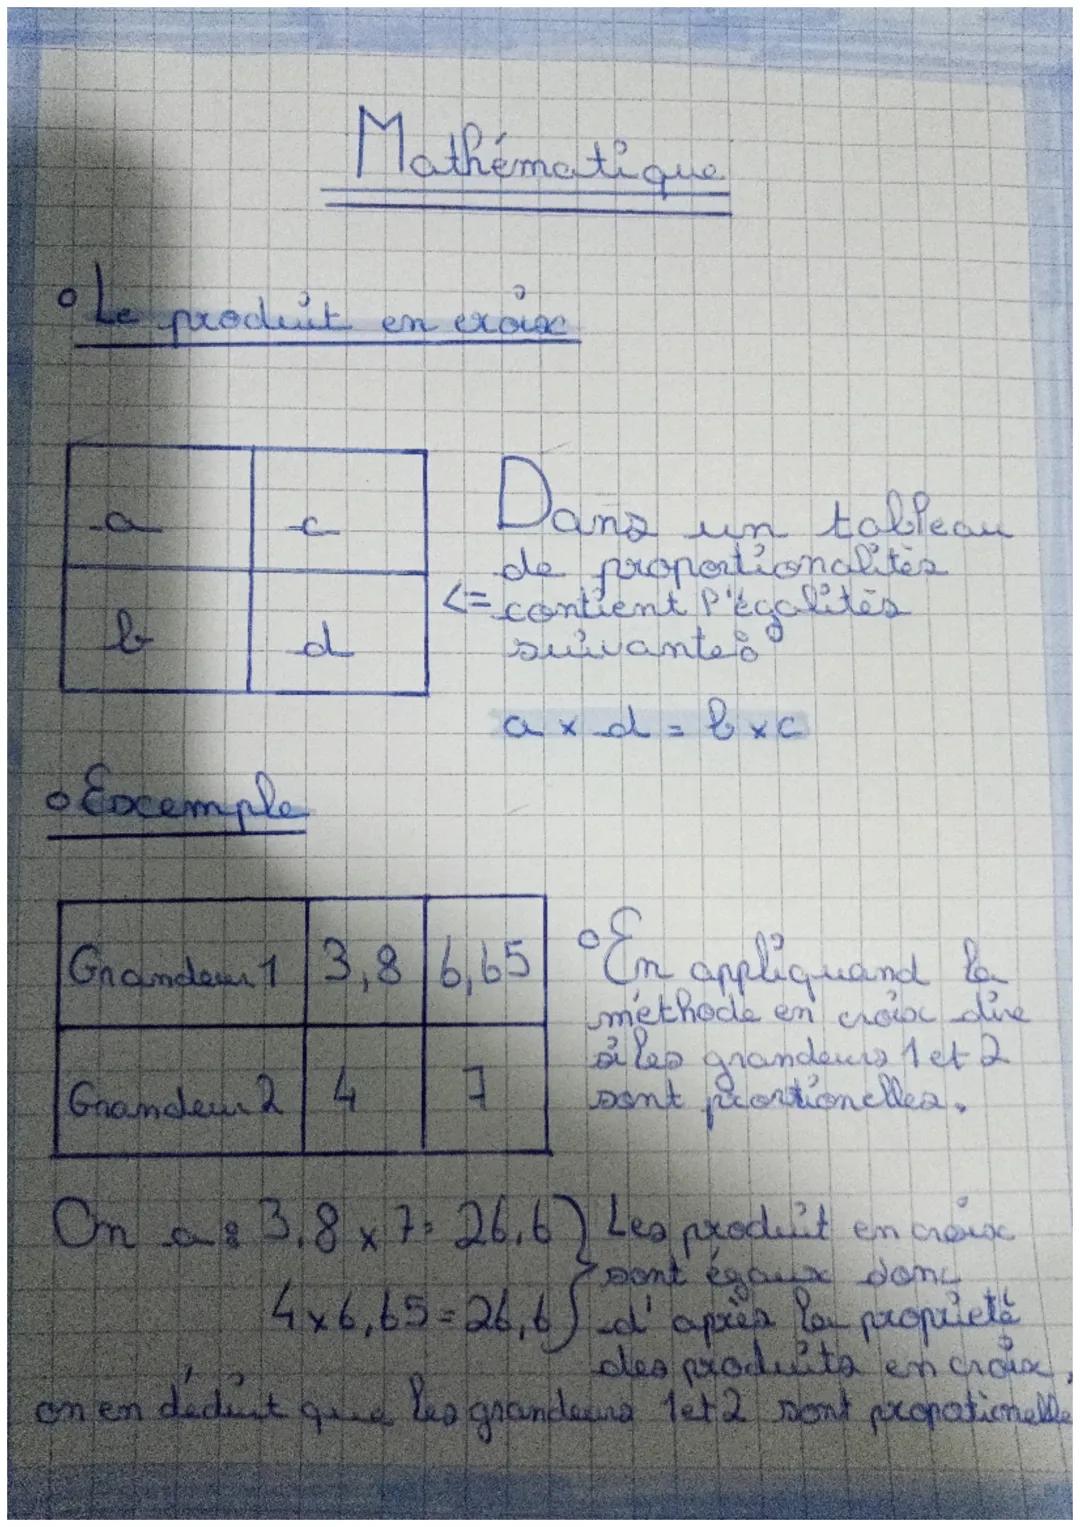 Mathématique
Le produit en croix
a c
b d
Dans un tableau
de proportionalités
<= contient l'égalités
suivante :
a x d = b x c
Exemple
Grandeur 1 3,8 6,65
Grandeur 2 4 7
En appliquand la
méthode en croix dire
si les grandeurs 1 et 2
sont prortionelles.
On a : 3,8 x 7 = 26,6
4 x 6,65 = 26,6
Les produit en croix
sont égaux donc
d'après la propriété
des produits en croix,
on en déduit que les grandeurs 1 et 2 sont propotionelle